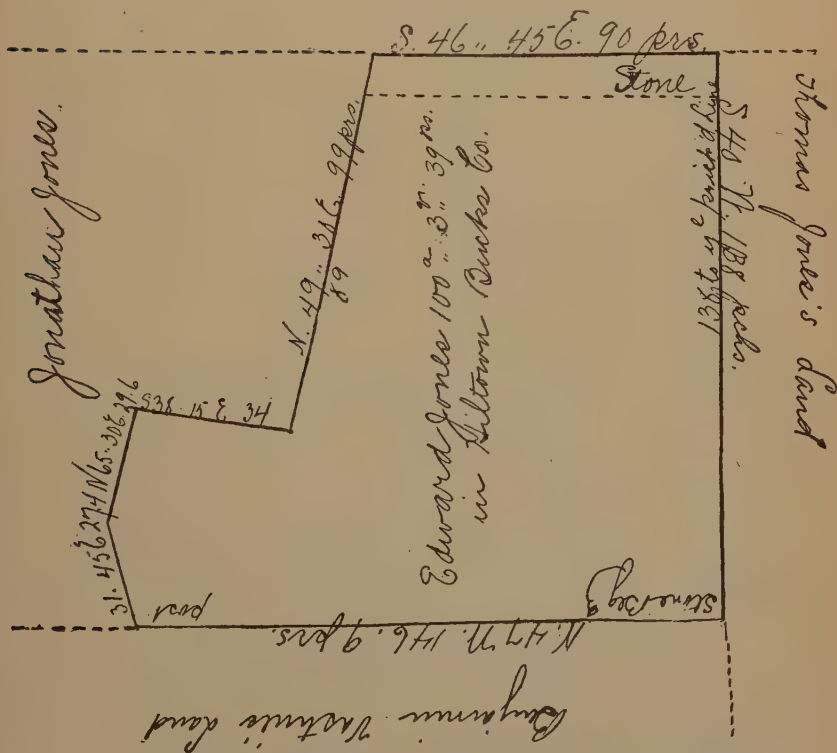 S. 46„ 45 E. 90 prs.
Stone
Thomas Jones's Land
S 40 W. 188 pchs.
138 to ye priv'd line
Jonathan Jones.
N. 49„ 30 E. 99 prs.
89
Edward Jones 100 a„ 3 qr„ 39 prs.
in Hiltown Bucks Co.
S38 15 E 34
N65.30 E. 29.6
31. 45 E 274
post
Stone Beg
N. 47 W. 146. 9 prs.
Benjamin Land